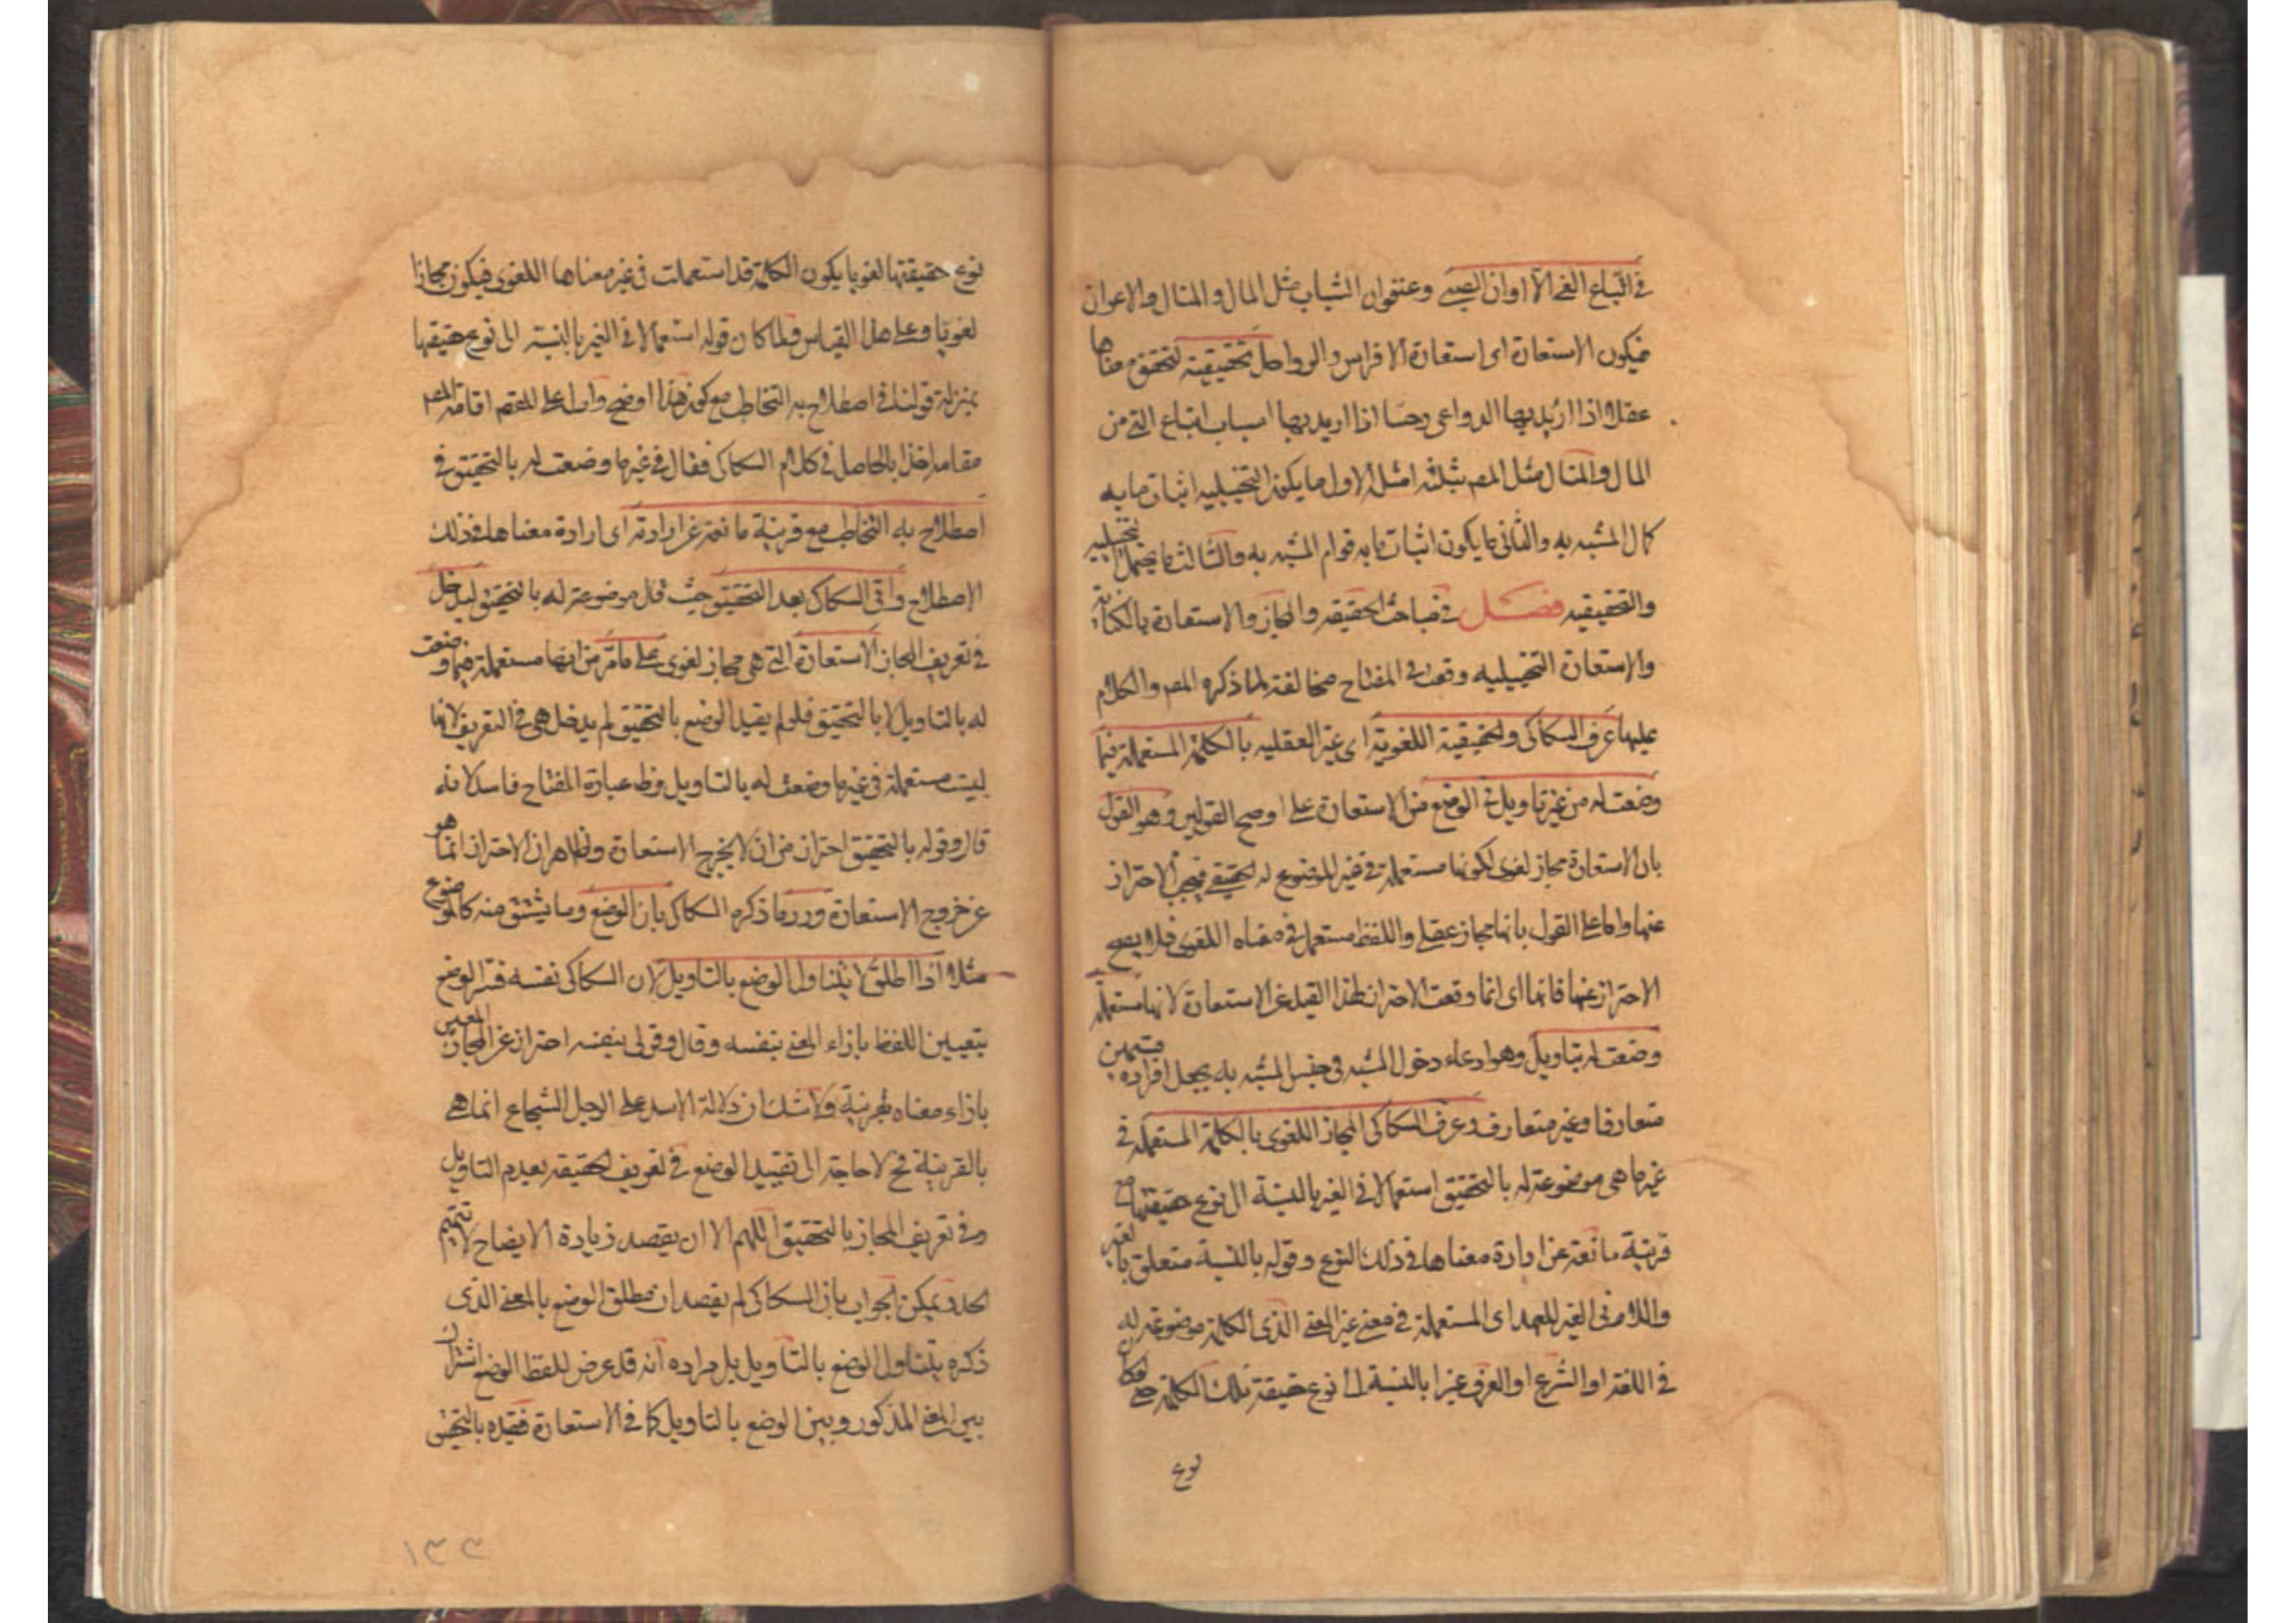 في اتباع الغي الا اوان الصبى وعنفوان الشباب مثل المال والمنال والاعوان
فيكون الاستعارة اى استعارة الافراس والرواحل تحقيقية لتحقق معناها
عقلا اذا اريد بها الدواعى وحسا اذا اريد بها اسباب اتباع الغى من
المال والمنال مثل المص بثلثة امثلة الاول ما يكون التخييلية اثبات ما به
كمال المشبه به والثانى ما يكون اثبات ما به قوام المشبه به والثالث ما يحتمل التخييلية
والتحقيقيه فصل في مباحث الحقيقه والمجاز والاستعارة بالكناية
والاستعارة التخييليه وقعت فى المفتاح مخالفة لما ذكره المص والكلام
عليها عرف السكاكى الحقيقية اللغوية اى غير العقليه بالكلمة المستعملة فيما
وضعت له من غير تاويل فى الوضع من الاستعارة على اوصح القولين وهو القول
بان الاستعارة مجاز لغوى لكونها مستعملة فى غير الموضوع له الحقيقى فيجب الاحتراز
عنها واما على القول بانها مجاز عقلى واللفظ مستعمل فى معناه اللغوى فلا يصح
الاحتراز عنها فانها اى انما وقعت الاحتراز بهذا القيد عن الاستعارة لانها مستعملة
وضعت له بتاويل وهو ادعاء دخول المشبه فى جنس المشبه به بجعل افراده قسمين
متعارفا وغير متعارف وعرف السكاكى المجاز اللغوى بالكلمة المستعملة فى
غير ما هى موضوعة له بالتحقيق استعمالا فى الغير بالنسبة الى نوع حقيقتها مع
قرينة مانعة عن ارادة معناها فى ذلك النوع وقوله بالنسبة متعلق بالغير
واللام فى الغير للعهد اى المستعملة فى معنى غير المعنى الذى الكلمة موضوعة له
فى اللغة او الشرع او العرف غيرا بالنسبة الى نوع حقيقة تلك الكلمة حتى لو كان
نوع
نوع حقيقتها لغويا يكون الكلمة قد استعملت فى غير معناها اللغوى فيكون مجازا
لغويا وعلى هذا القياس ولما كان قوله استعمالا فى الغير بالنسبة الى نوع حقيقتها
بمنزلة قولنا فى اصطلاح به التخاطب مع كون هذا اوضح وادل على المقصود اقامه المص
مقامه اخذا بالحاصل فى كلام السكاكى فقال فى غير ما وضعت له بالتحقيق فى
اصطلاح به التخاطب مع قرينة مانعة عن ارادته اى ارادة معناها فى ذلك
الاصطلاح واتى السكاكى بقيد التحقيق حيث قال موضوعة له بالتحقيق ليدخل
فى تعريف المجاز الاستعارة التى هى مجاز لغوى على ما مر من انها مستعملة فيما وضعت
له بالتاويل لا بالتحقيق فلو لم يقيد الوضع بالتحقيق لم يدخل هى فى التعريف لانها
ليست مستعملة فى غير ما وضعت له بالتاويل وظ عبارة المفتاح فاسد لانه
قال وقوله بالتحقيق احتراز من ان لا يخرج الاستعارة وظاهر ان الاحتراز انما هو
عن خروج الاستعارة ورد ما ذكره السكاكى بان الوضع وما يشتق منه كالموضوع
مثلا اذا اطلق لا يتناول الوضع بالتاويل لان السكاكى نفسه فسر الوضع
بتعيين اللفظ بازاء المعنى بنفسه وقال وقولى بنفسه احتراز عن المجاز المعين
بازاء معناه بقرينة ولا شك ان دلالة الاسد على الرجل الشجاع انما هى
بالقرينة فح لا حاجة الى تقييد الوضع فى تعريف الحقيقه بعدم التاويل
وفى تعريف المجاز بالتحقيق اللهم الا ان يقصد زيادة الايضاح لا تتميم
الحد ويمكن الجواب بان السكاكى لم يقصد ان مطلق الوضع بالمعنى الذى
ذكره يتناول الوضع بالتاويل بل مراده انه قد عرض للفظ الوضع اشتراك
بين المعنى المذكور وبين الوضع بالتاويل كما فى الاستعارة فقيده بالتحقيق
١٣٣